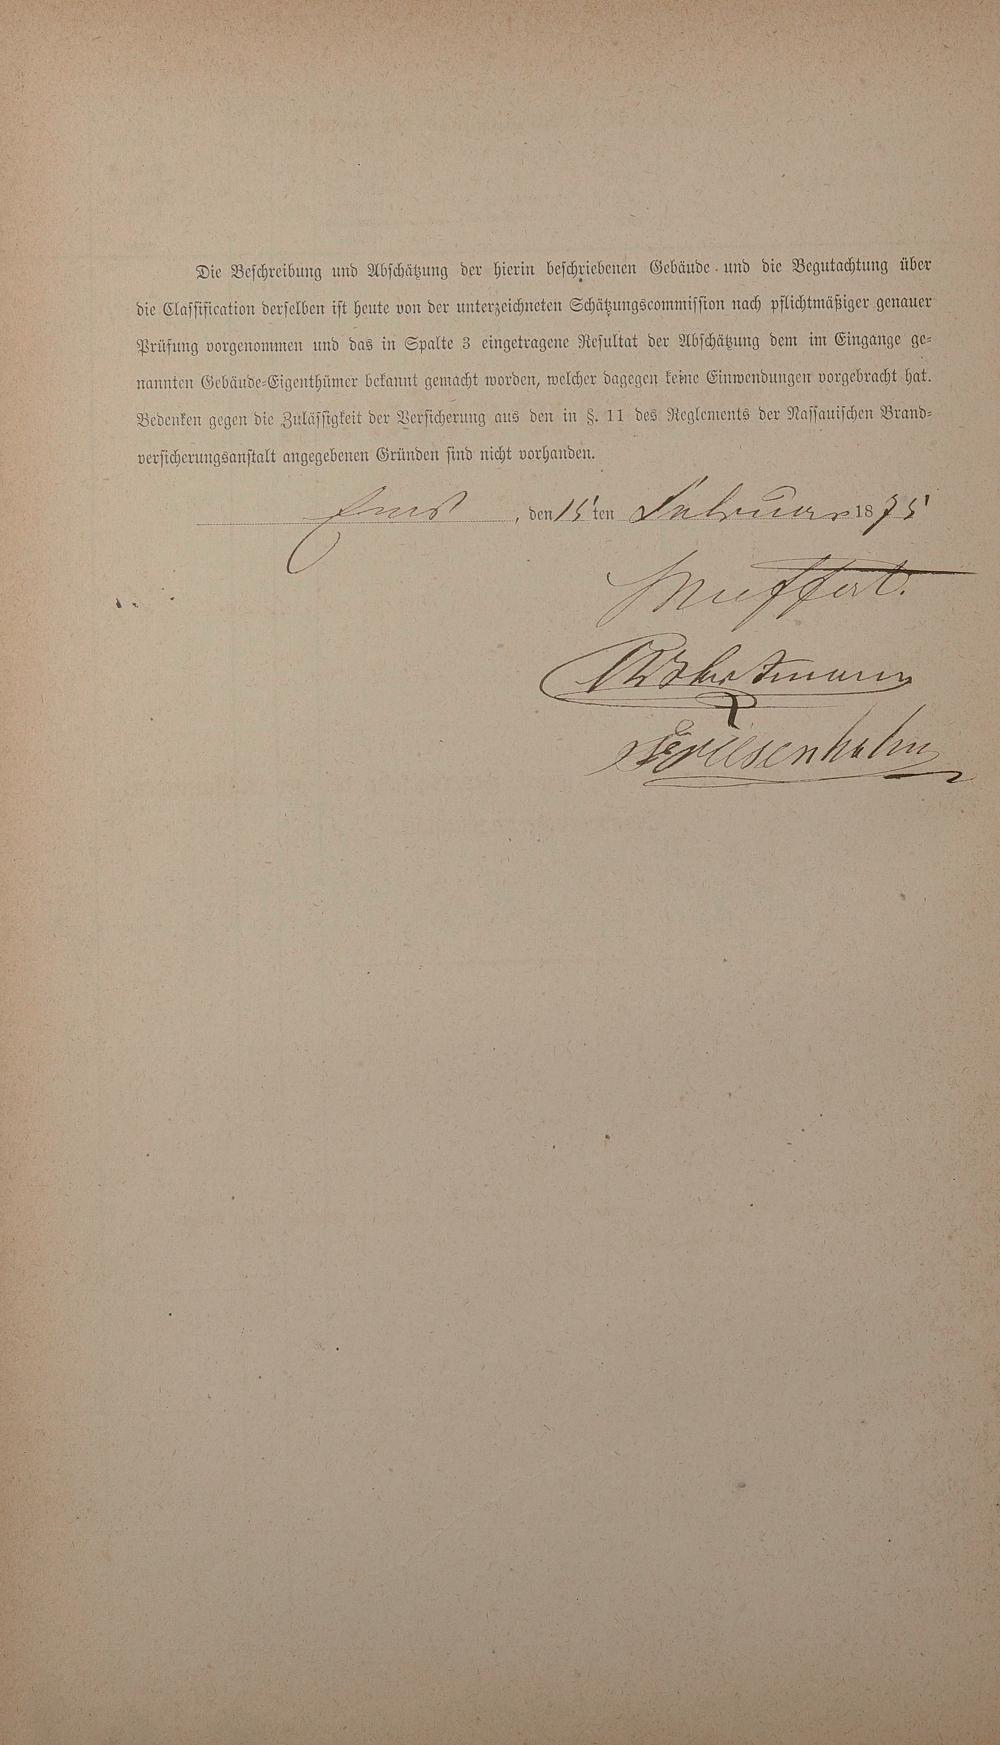 Die Beschreibung und Abschätzung der hierin beschriebenen Gebäude und die Begutachtung über
die Classification derselben ist heute von der unterzeichneten Schätzungscommission nach pflichtmäßiger genauer
Prüfung vorgenommen und das in Spalte 3 eingetragene Resultat der Abschätzung dem im Eingange ge-
nannten Gebäude-Eigenthümer bekannt gemacht worden, welcher dagegen keine Einwendungen vorgebracht hat.
Bedenken gegen die Zulässigkeit der Versicherung aus den in §. 11 des Reglements der Nassauischen Brand-
versicherungsanstalt angegebenen Gründen sind nicht vorhanden.
Ems, den 15ten Februar 1875